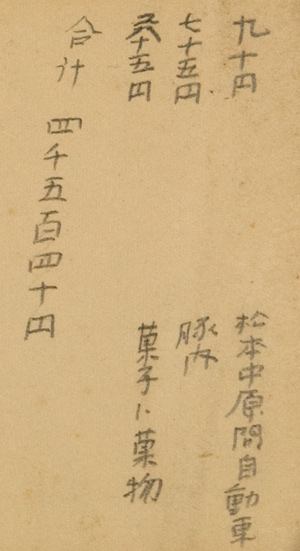 九十円 松本中原間自動車
七十五円 豚肉
十五円 菓子ト菓物
合計 四千五百四十円